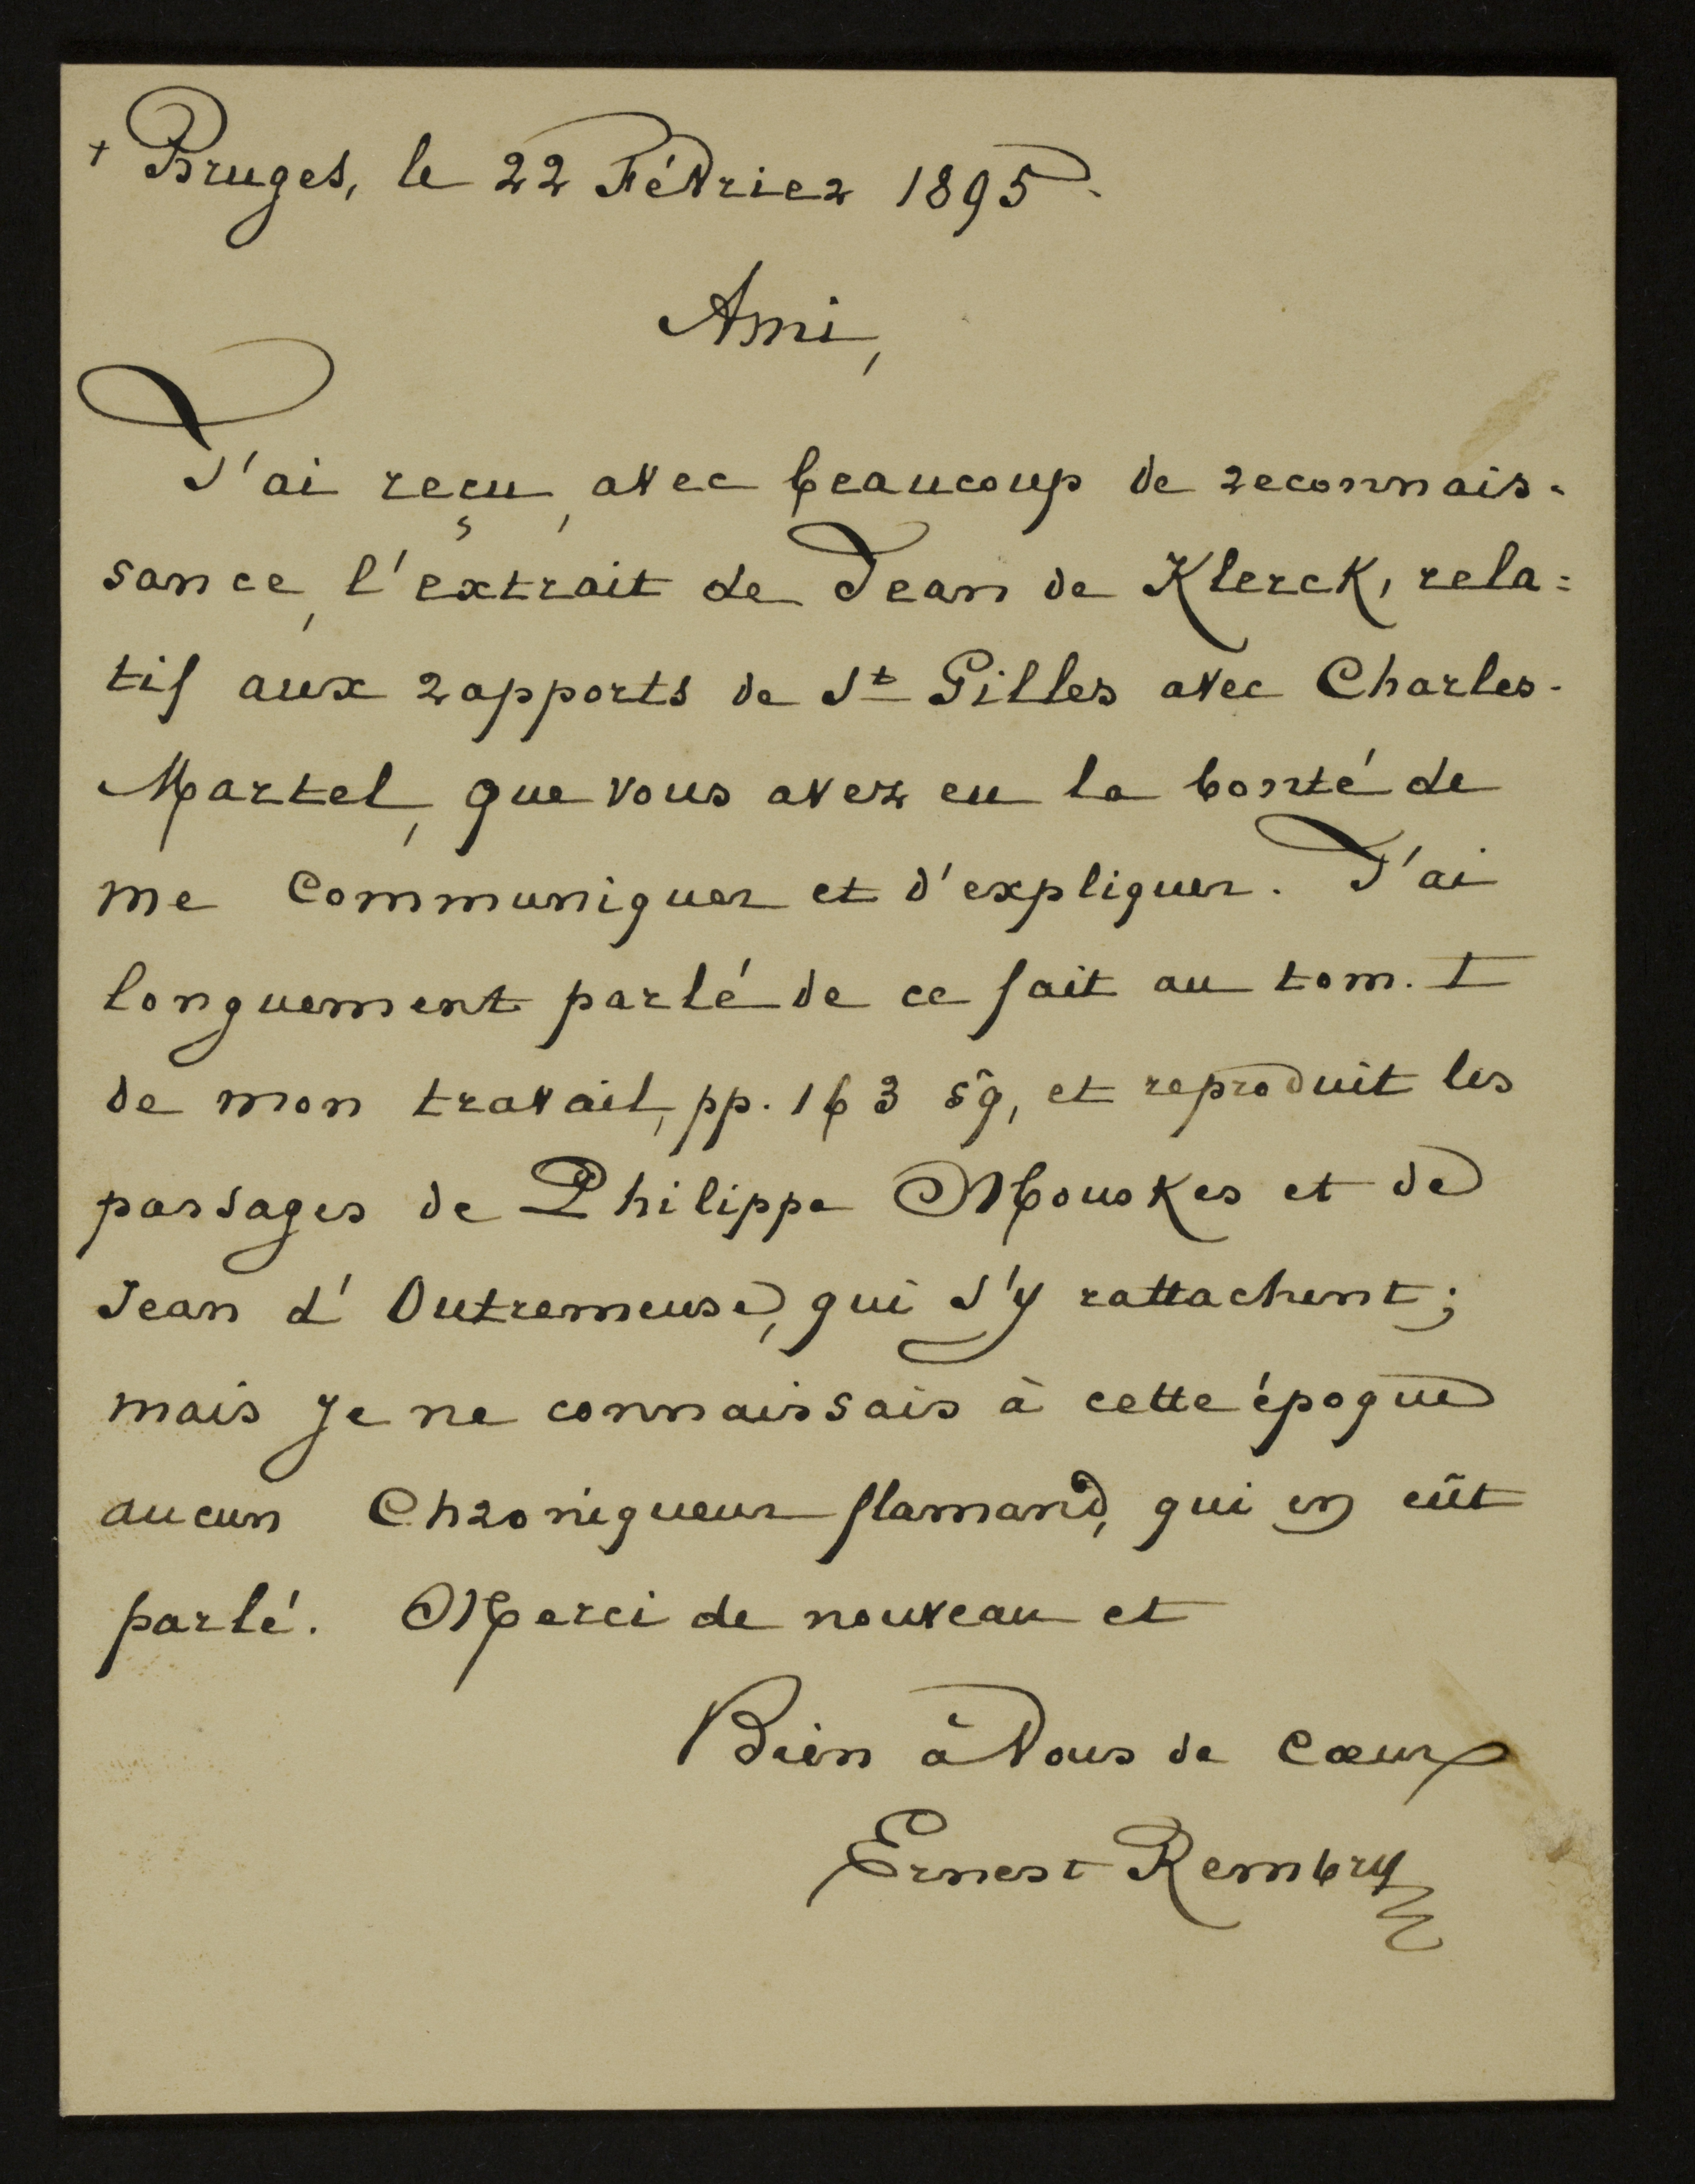 + Bruges, le 22 Février 1895.
Ami,
J'ai reçu, avec beaucoup de reconnais-
sance, l'extrait de Jean de Klerck, rela=
tif aux rapports de St Gilles avec Charles-
Martel, que vous avez eu la bonté de
me communiquer et d'expliquer. J'ai
longuement parlé de ce fait au tom. I
de mon travail, pp. 163 sq, et reproduit les
passages de Philippe Mouskes et de
Jean d'Outremeuse, qui s'y rattachent;
mais je ne connaissais à cette époque
aucun Chroniqueur flamand, qui en eût
parlé. Merci de nouveau et
Bien à Vous de Cœur
Ernest Rembry